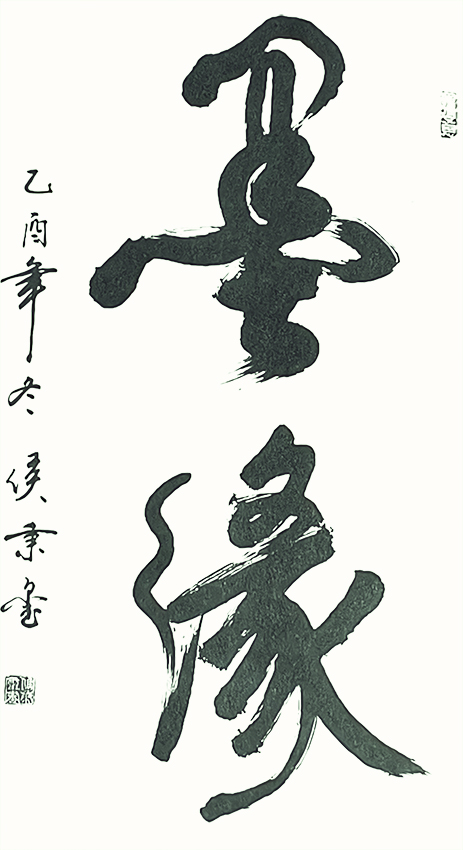 墨缘
乙酉年冬侯秉金